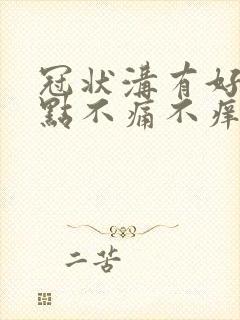 冠状溝有好
點不痛不痒
二苦